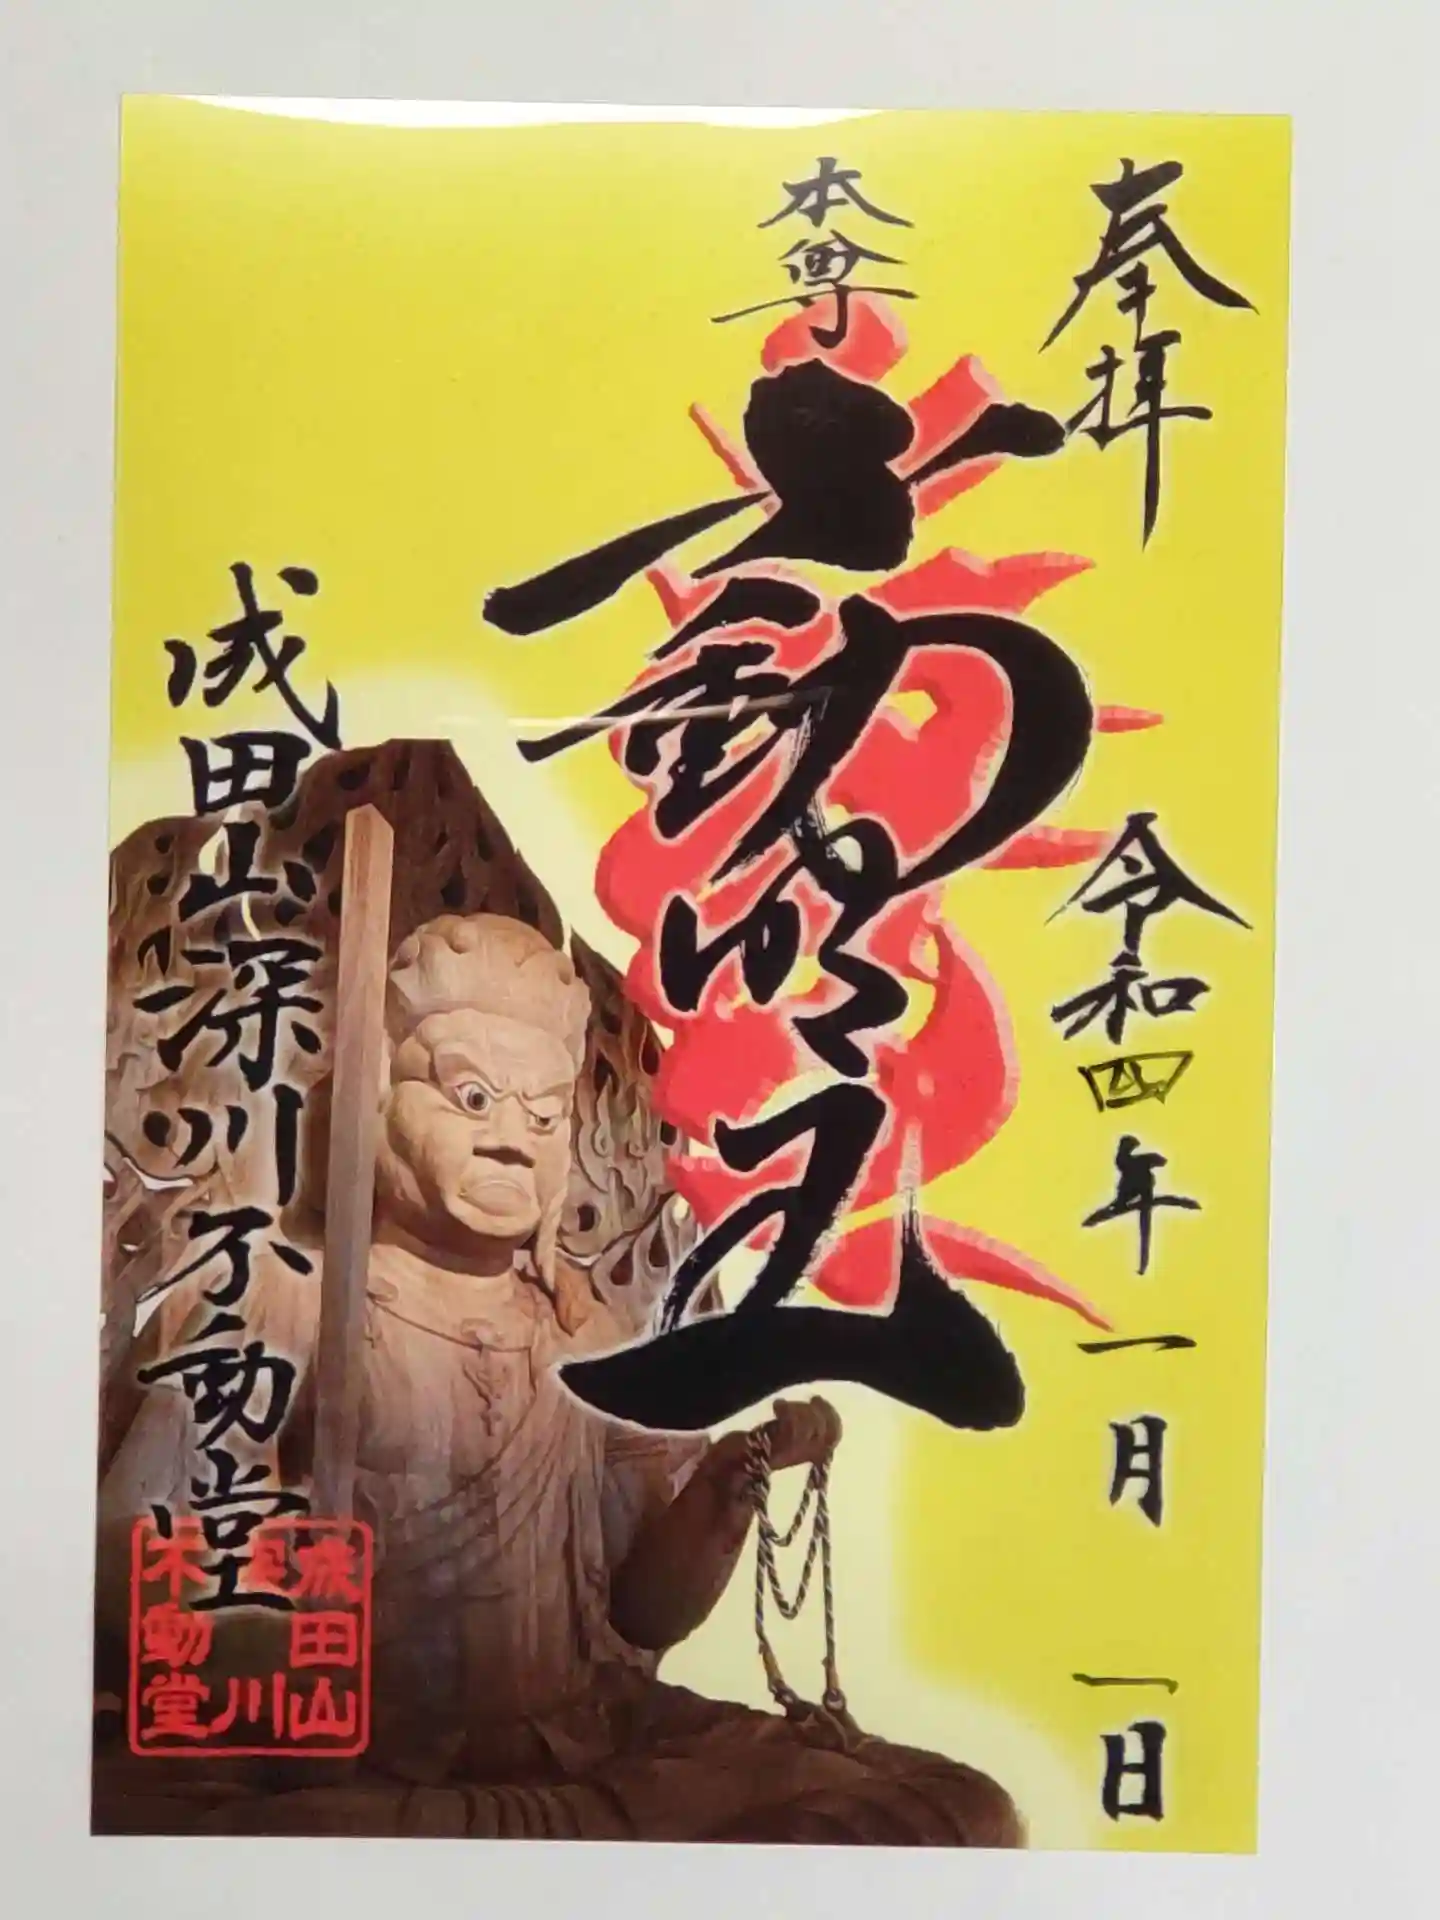 奉拝
令和四年一月一日
本尊
不動明王
成田山深川不動堂
成田山
深川
不動堂